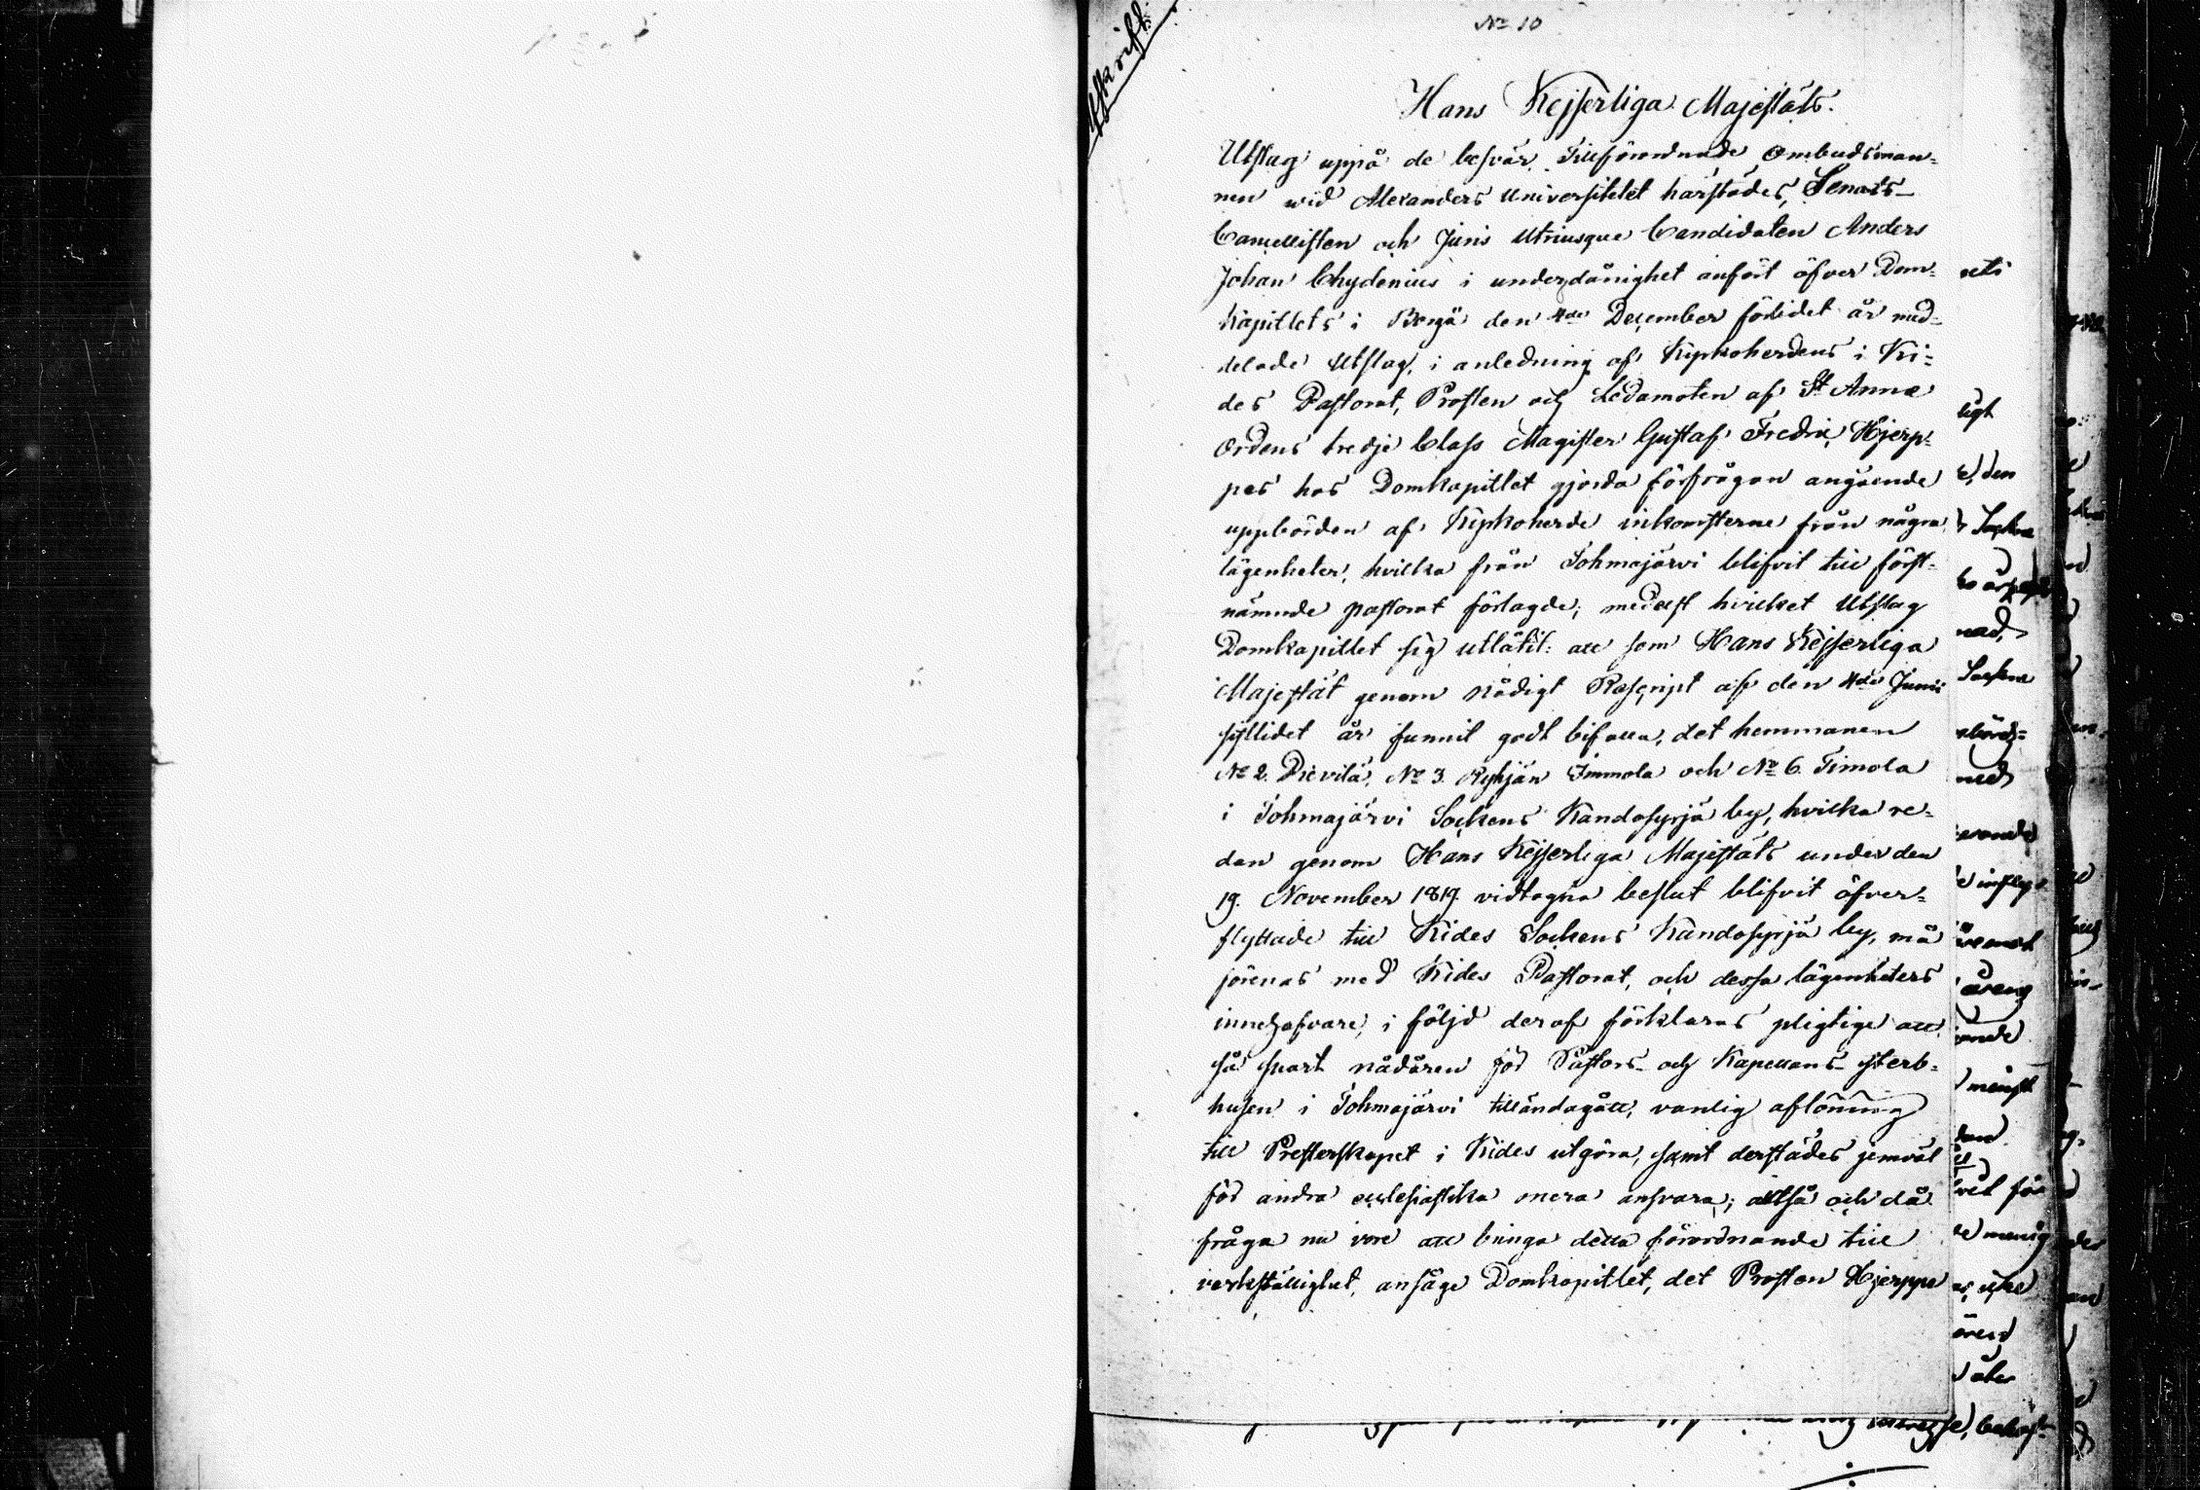 Afskrift.
No 10
Hans Kejserliga Majestäts.
Utslag uppå de besvär, Tillförordnade Ombudsman-
nen wid Alexanders Universitetet härstädes, Senats-
Cancellisten och Juris Utriusque Candidaten Anders
Johan Chydenius i underdånighet anfört öfver Dom-
kapitlets i Borgå den 4de December förlidet år med-
delade Utslag, i anledning af Kyrkoherdens i Ki-
des Pastorat, Prosten och Ledamoten af St Annæ
Ordens tredje Class Magister Gustaf Fredric Hjerp-
pes hos Domkapitlet gjorda förfrågan angående
uppbörden af Kyrkoherde inkomsterne från några
lägenheter, hvilka från Tohmajärvi blifvit till först-
nämnde pastorat förlagde; medelst hvilket Utslag
Domkapitlet sig utlåtit: att som Hans Kejserliga
Majestät genom nådigt Rescript af den 4de Junii
sistlidet år funnit godt bifalla, det hemmanen
No 2. Pievilä, No 3. Ryhjän Immola och No 6. Timola
i Tohmajärvi Sockens Kandosyrjä by, hvilka re-
dan genom Hans Kejserliga Majestäts under den
19. November 1819. vidtagna beslut blifvit öfver-
flyttade till Kides Sockens Kandosyrjä by, må
förenas med Kides Pastorat, och dessa lägenheters
innehafvare, i följd deraf förklaras pligtige att
så snart nådåren för Pastors- och Kapellans- sterb-
husen i Tohmajärvi tilländagått, vanlig aflöning
till Presterskapet i Kides utgöra, samt derstädes jemväl
för andra ecclesiastika onera ansvara; altså och då
fråga nu vore att bringa detta förordnande till
verkställighet, ansåge Domkapitlet, det Prosten Hjerppe